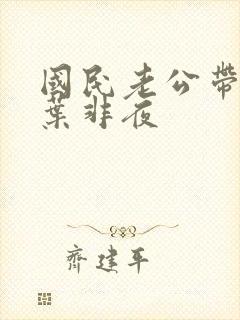 國民老公帶
葉非夜
齊建平